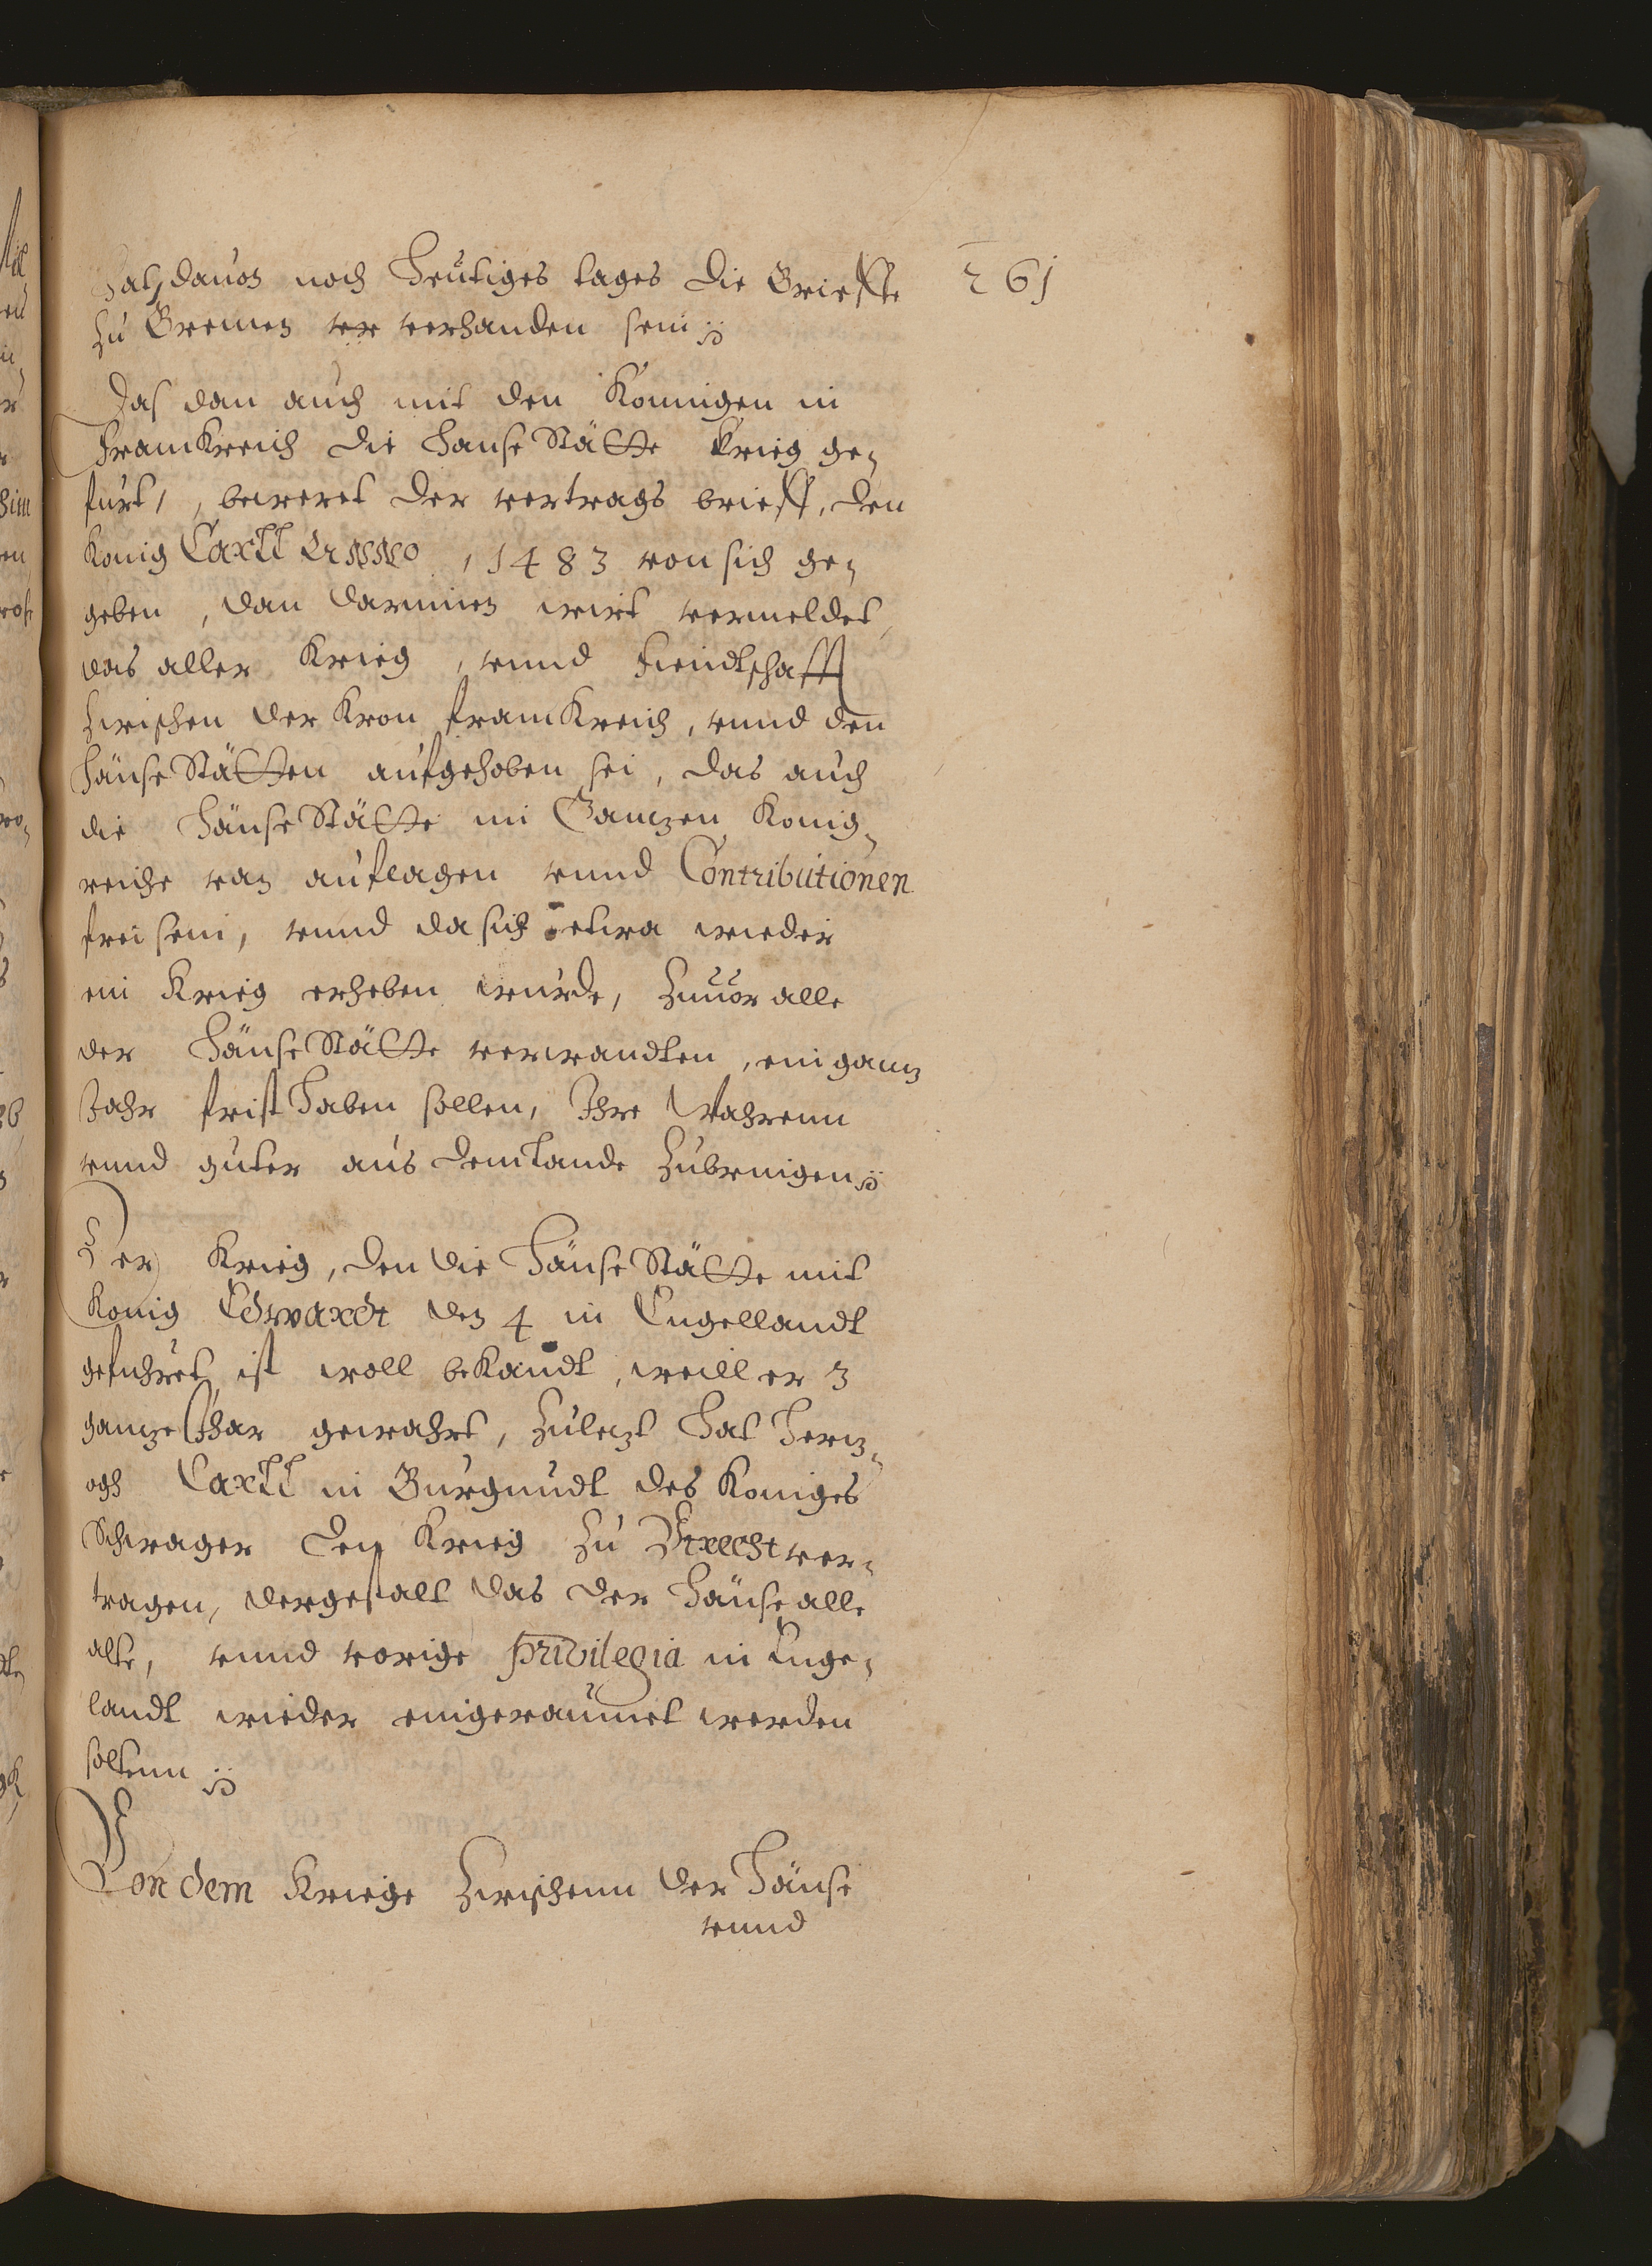 hat, dauon noch heutiges tages die Brieffe
261
zu Bremen ver verhanden sein
Das dan auch mit den Konnigen in
Franckreich die Hanse Stätte krieg ge-
furt, beweret der vertrags brieff, den
Konig Carll Anno, 1483 von sich ge-
geben, dan darinnen wirt vermeldet,
das aller Krieg, vnnd Fiendtschafft
Zwischen der Kron Franckreich, vnnd den
Hänse Stätten aufgehoben sei, das auch
die Hänse Stätte im Ganzen Konig-
reiche van auflagen vnnd Contributionen
frei sein, vnnd da sich etwa wieder
ein Krieg erheben wurde, Zuuor alle
der Hänse Stätte verwandten, ein ganz
Jahr frist haben sollen, Ihre Wahrenn
vnnd guter aus dem Lande Zubringen
Der Krieg, den die Hänse Stätte mit
Konig Edwardt den 4 in Engellandt
gefuhret, ist woll bekandt, weill er 3
ganze Jhar gewahrt, Zulezt hat Herz-
ogh Carll in Burgundt des Koniges
Schwager den Krieg zu Vtrecht ver-
tragen, dergestalt das der Hänse alle
alte, vnnd vorige privilegia in Enge-
landt wieder eingeraumet werden
soltenn
Von dem Kriege Zwischenn der Hänse
vnnd